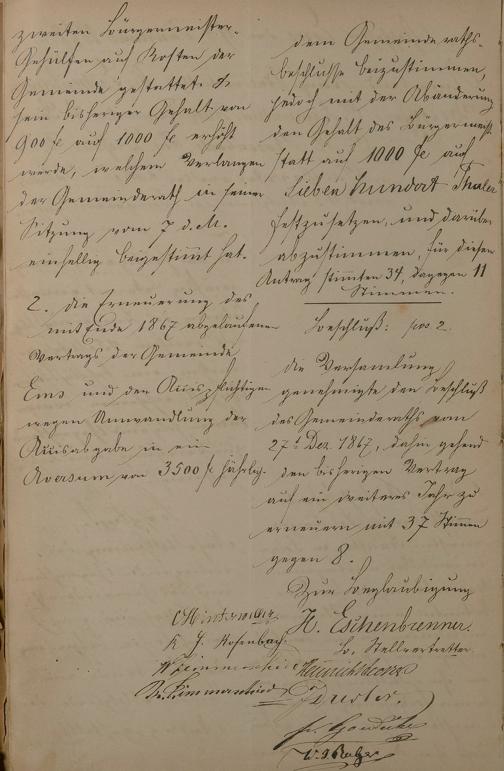 zweiten Bürgermeister-
Gehülfen auf Kosten der
Gemeinde gestattet &
sein bisheriger Gehalt von
900 fl auf 1000 fl erhöht
werde, welchem Verlangen
der Gemeinderath in seiner
Sitzung vom 7 d. M.
einhellig beigestimmt hat.
2. die Erneuerung des
mit Ende 1867 abgelaufenen
Vertrags der Gemeinde
Ems und den Acispflichtigen
wegen Umwandlung der
Acisabgabe in ein
Aversum von 3500 fl jährlich.
dem Gemeinderaths-
beschlusse beizustimmen,
jedoch mit der Abänderung
den Gehalt des Bürgermeist.
statt auf 1000 fl auf
Sieben hundert Thaler
festzusetzen, und darüber
abzustimmen, für diesen
Antrag stimmten 34, dagegen 11
Stimmen.
Beschluß: pos 2.
die Versamlung
genehmigte den Beschluß
des Gemeinderaths vom
27t Dez. 1867, dahin gehend
den bisherigen Vertrag
auf ein weiteres Jahr zu
erneuern mit 37 Stimmen
gegen 8.
Zur Beglaubigung
H. Eschenbrenner.
Stellvertretter.
K. J. Rosenbach